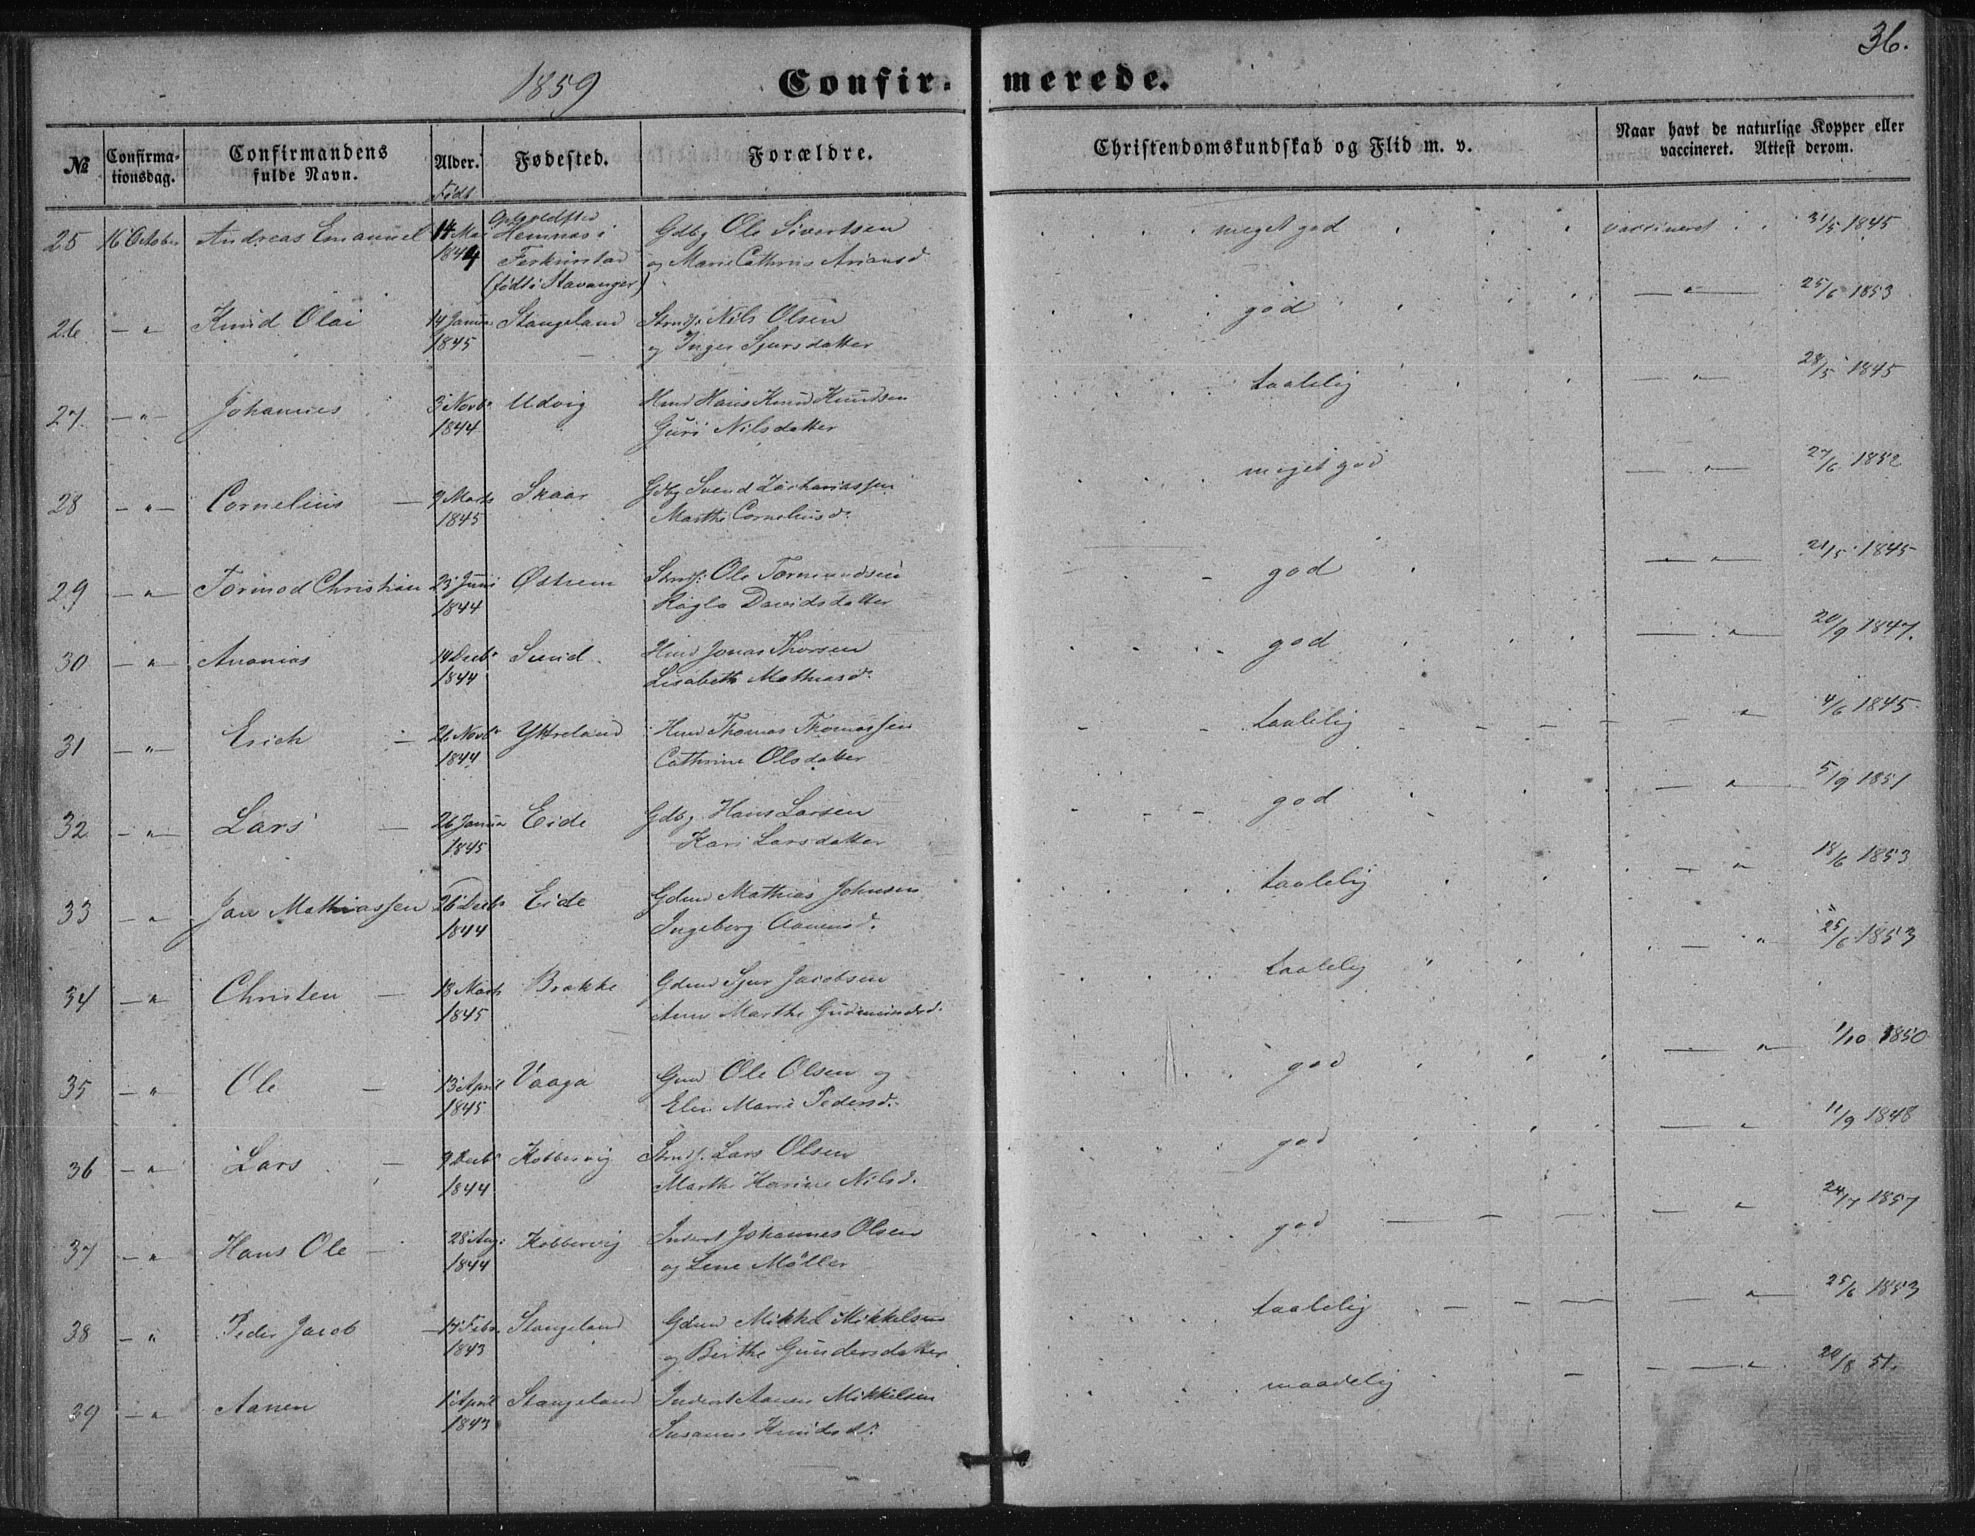 36.
1859 Confirmerede.
№ Confirmationsdag. Confirmandens fulde Navn. Alder. Født Fødested. Forældre. Christendomskundskab og Flid m. v. Naar havt de naturlige Kopper eller vaccineret. Attest derom.
25 16 October Andreas Emanuel 14 Mai 1844 Hemnas i Ferkinstad (født i Stavanger) Gdbg Ole Sivertsen og Marie Cathrine meget god vaccineret 31/5 1845
26 — " Knud Olai 14 Januar 1845 Stangeland Strnds: Nils Olsen og Inger Sjursdatter god — " — 25/6 1853
27 — " — Johannes 3 Novbr 1844 Udvig Hmd Hans Knud Knudsen Guri Nilsdatter taalelig — " — 28/5 1845
28 — " — Cornelius — 9 Marts 1845 Skaar Gdbg Svend Zachariassen Marthe Corneliusd. meget god — " — 27/6 1852
29 — " — Tormod Christian 23 Juni 1844 Østrem Strnds: Ole Tormundsen Ragla Davidsdatter god — " — 21/5 1845
30 — " Ananias 14 Decbr 1844 Sund Hmd Jonas Thorsen Lisabeth Mathiasd. god — " 20/9 1847.
31 — " — Erich — 21 Novbr 1844 Yttreland Hmd Thomas Thomassen Cathrine Olsdatter taalelig — " 4/6 1845
32 — " — Lars — 26 Januar 1845 Eide Gdbg. Hans Larsen Kari Larsdatter god — " — 5/9 1851
33 — " Jan Mathiassen 26 Decbr 1844 Eide Gdmd Mathias Johnsen Ingeborg taalelig — " 18/6 1853
34 — " Christen — 13 Marts 1845 Brakke Gdmd Sjur Jacobsen Ane Marthe Gudmundsd. taalelig — " 25/6 1853
35 — " — Ole — 13 April 1845 Vaaga Gmd Ole Olsen og Elen Marie Pedersd. god — " — 1/10 1850
36 — " Lars — 9 Decbr 1844 Kobbervig Strnds. Lars Olsen Marthe Karine Nilsd. god — " 11/9 1848
37 — " Hans Ole — 28 Aug: 1844 Kobbervig Inderst Johannes Olsen og Lene Møller god — " 24/7 1857
38 — " Peder Jacob — 17 Febr. 1843 Stangeland Gdmd Mikkel Mikkelsen og Berthe Gundersdatter taalelig — " — 25/6 1853
39 — " Aanen 1 April 1843 Stangeland Inderst Aanen Mikkelsen Susanne Knudsd. maadelig — " 20/8 51.